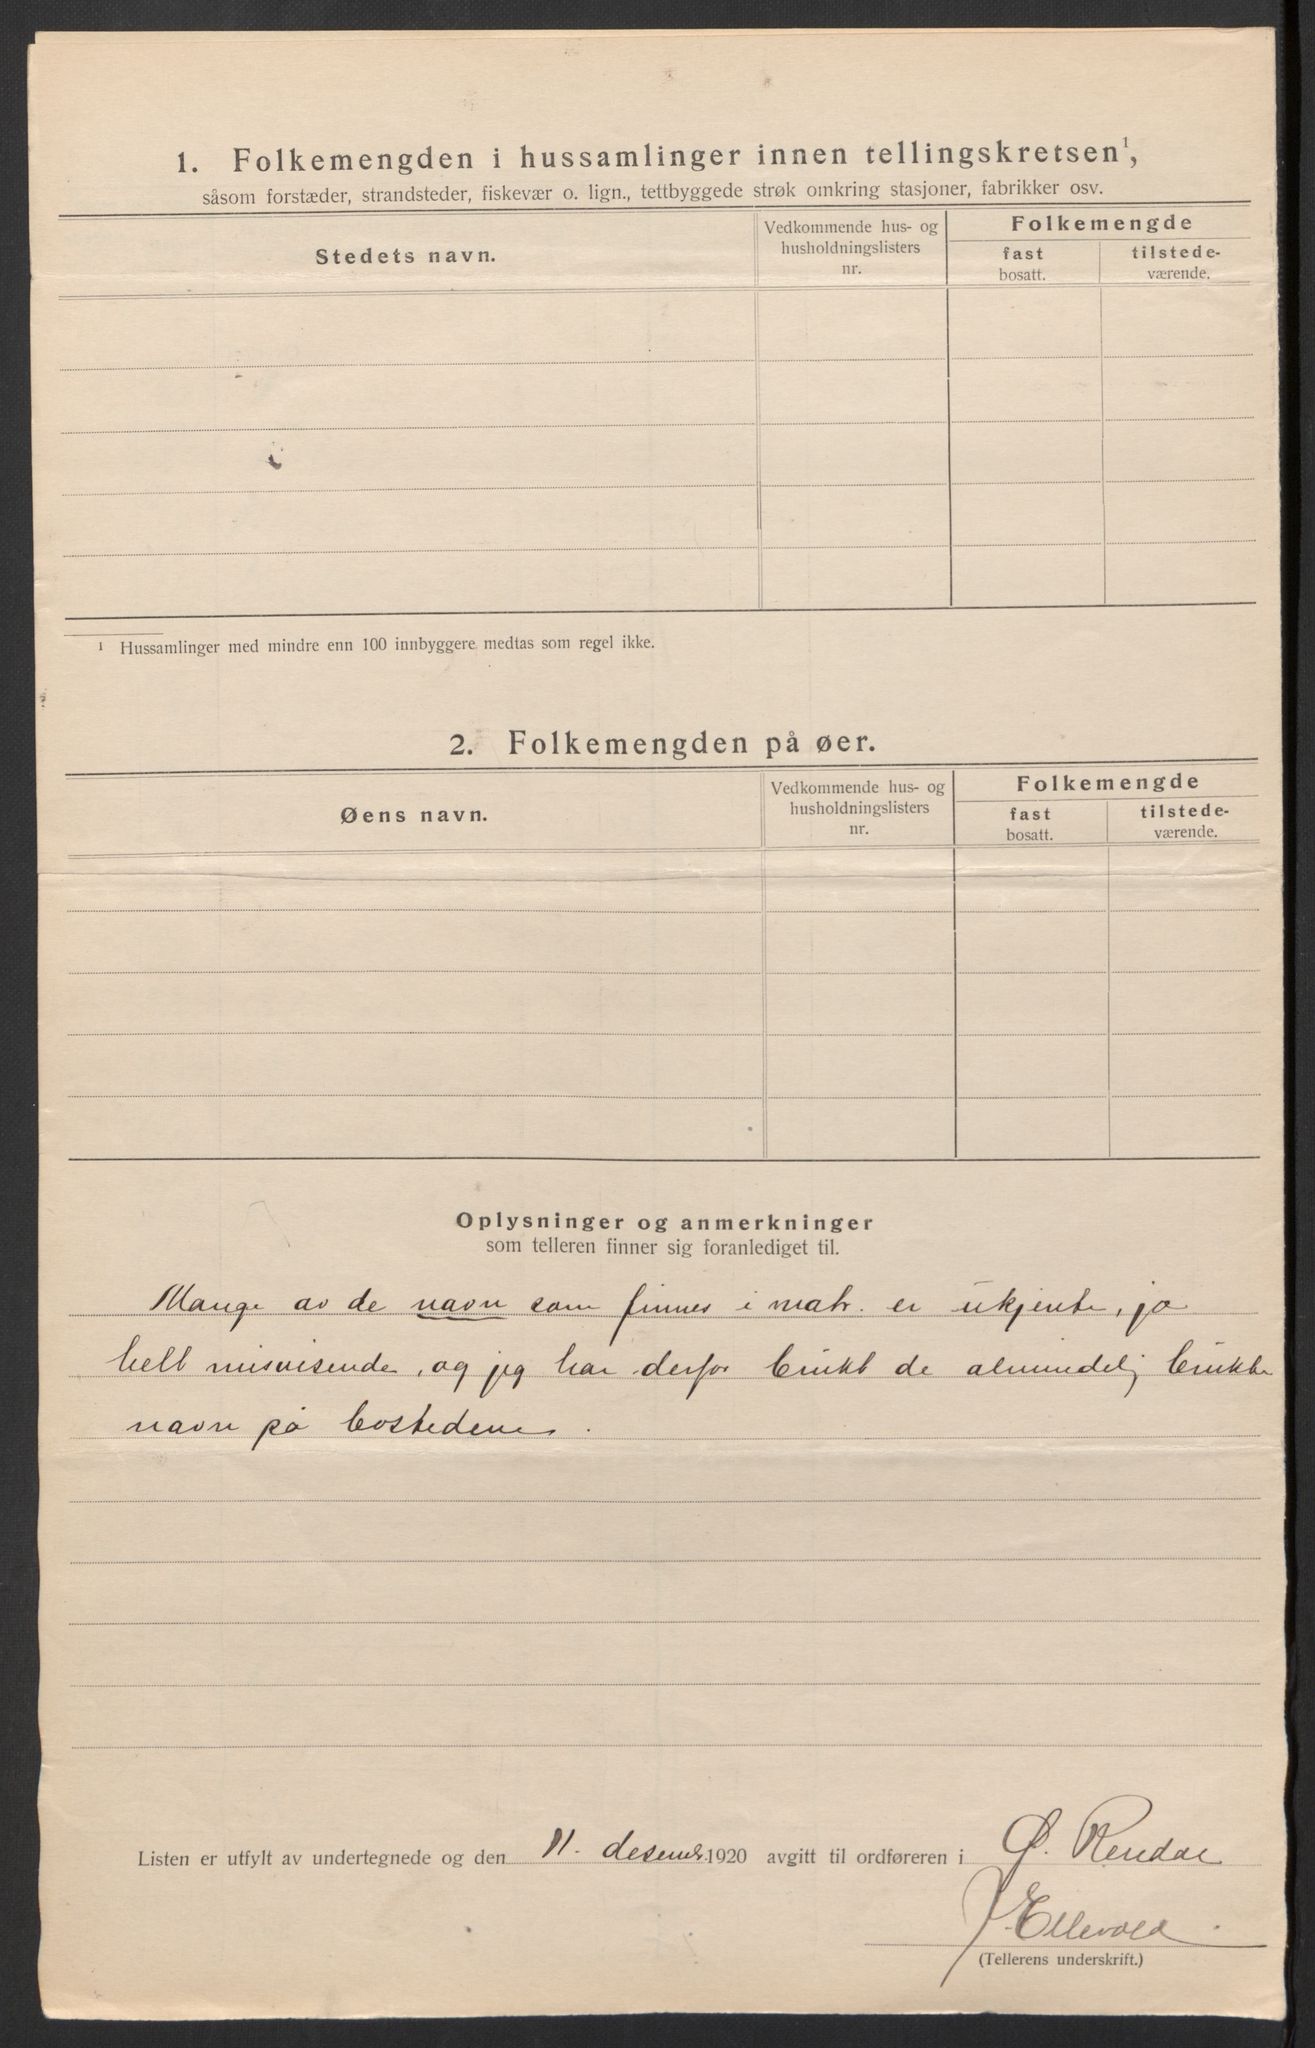 1. Folkemengden i hussamlinger innen tellingskretsen¹,
såsom forstæder, strandsteder, fiskevær o. lign., tettbyggede strøk omkring stasjoner, fabrikker osv.
Stedets navn.
Vedkommende hus- og
husholdningslisters
nr.
Folkemengde
fast
bosatt.
tilstede-
værende.
¹ Hussamlinger med mindre enn 100 innbyggere medtas som regel ikke.
2. Folkemengden på øer.
Øens navn.
Vedkommende hus- og
husholdningslisters
nr.
Folkemengde
fast
bosatt.
tilstede-
værende.
Oplysninger og anmerkninger
som telleren finner sig foranlediget til.
Mange av de navn som finnes i matr. er ukjente, ja
helt misvisende, og jeg har derfor brukt de almindelig brukte
navn på bostedene.
Listen er utfylt av undertegnede og den 11. desemb. 1920 avgitt til ordføreren i Ø. Rendal
J Ellevold
(Tellerens underskrift.)